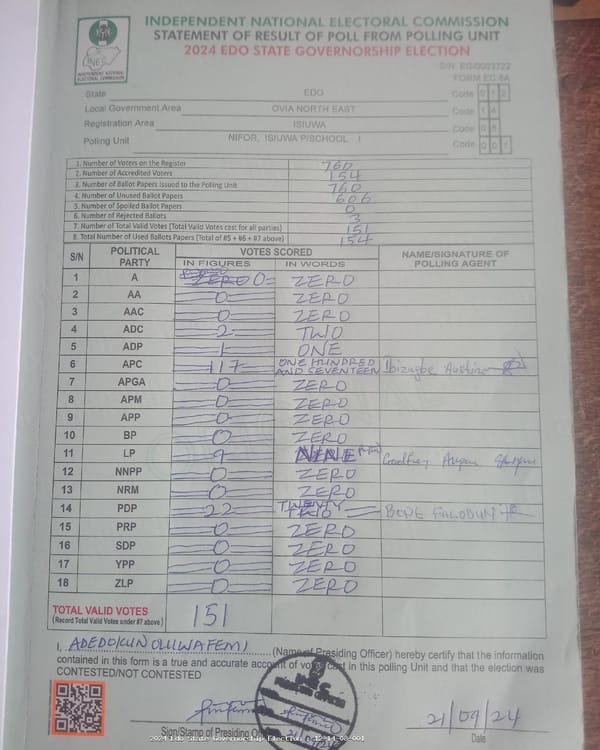 INDEPENDENT NATIONAL ELECTORAL COMMISSION
STATEMENT OF RESULT OF POLL FROM POLLING UNIT
2024 EDO STATE GOVERNORSHIP ELECTION
INEC
INDEPENDENT NATIONAL ELECTORAL COMMISSION
S/N: EG/0003722
FORM EC 8A
State EDO Code 0 1 2
Local Government Area OVIA NORTH EAST Code 1 4
Registration Area ISIUWA Code 0 8
Polling Unit NIFOR, ISIUWA P/SCHOOL I Code 0 0 1
1. Number of Voters on the Register 760
2. Number of Accredited Voters 154
3. Number of Ballot Papers Issued to the Polling Unit 760
4. Number of Unused Ballot Papers 606
5. Number of Spoiled Ballot Papers 0
6. Number of Rejected Ballots 3
7. Number of Total Valid Votes (Total Valid Votes cast for all parties) 151
8. Total Number of Used Ballots Papers (Total of #5 + #6 + #7 above) 154
S/N POLITICAL PARTY VOTES SCORED NAME/SIGNATURE OF POLLING AGENT
IN FIGURES IN WORDS
1 A ZERO 0 ZERO
2 AA 0 ZERO
3 AAC 0 ZERO
4 ADC 2 TWO
5 ADP 1 ONE
6 APC 117 ONE HUNDRED AND SEVENTEEN Austine
7 APGA 0 ZERO
8 APM 0 ZERO
9 APP 0 ZERO
10 BP 0 ZERO
11 LP 9 NINE
12 NNPP 0 ZERO
13 NRM 0 ZERO
14 PDP 22 TWENTY TWO
15 PRP 0 ZERO
16 SDP 0 ZERO
17 YPP 0 ZERO
18 ZLP 0 ZERO
TOTAL VALID VOTES 151
(Record Total Valid Votes under #7 above)
I, ADEDOKUN OLUWAFEMI (Name of Presiding Officer) hereby certify that the information
contained in this form is a true and accurate account of votes cast in this polling Unit and that the election was
CONTESTED/NOT CONTESTED
21/09/24
Sign/Stamp of Presiding Officer Date
2024 Edo State Governorship Election - 12-14-08-001